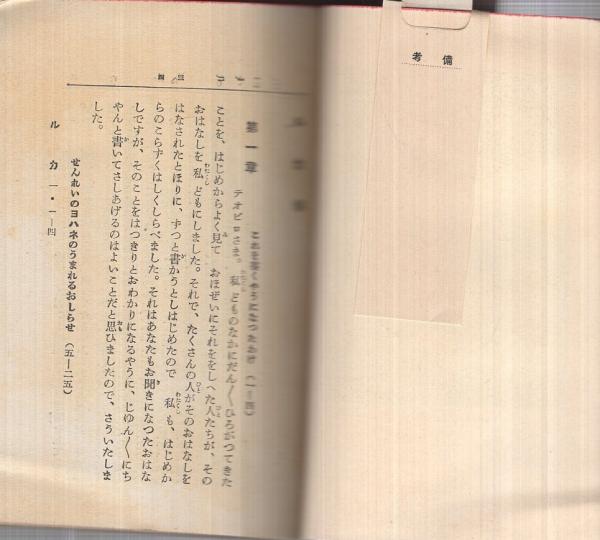 備考
第一章
これを書くやうになつたわけ（一―四）
テオピロさま。私どものなかにだん〱ひろがつてきた
ことを、はじめからよく見て　おほぜいにそれををしへた人たちが、その
おはなしを私どもにしました。それで、たくさんの人がそのおはなしを
はなされたとほりに、ずつと書かうとしはじめたので　私も、はじめか
らのこらずくはしくしらべました。それはあなたもお聞きになつたおはな
しですが、そのことをはつきりとおわかりになるやうに、じゆん〱にち
やんと書いてさしあげるのはよいことだと思ひましたので、さういたしま
した。
せんれいのヨハネのうまれるおしらせ（五―二五）
ルカ　一・一―四